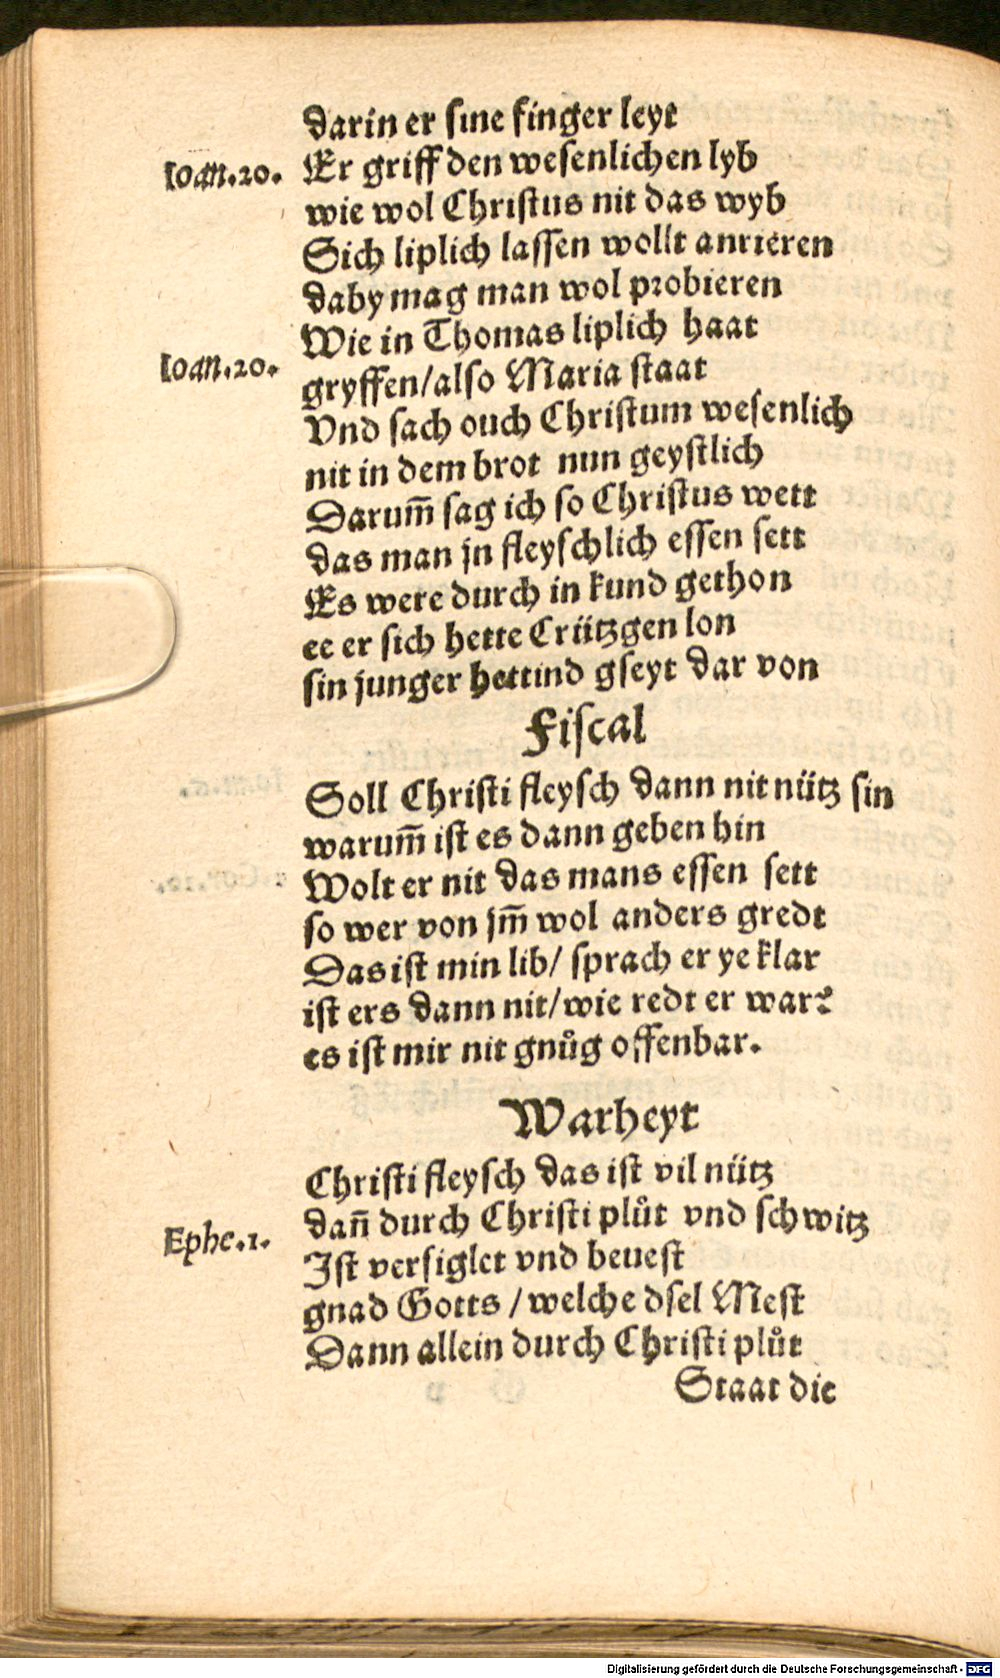 darin er sine finger leyt
Ioan.20. Er griff den wesenlichen lyb
wie wol Christus nit das wyb
Sich liplich lassen wollt anrieren
daby mag man wol probieren
Wie in Thomas liplich haat
Ioan.20. gryffen/also Maria staat
Vnd sach ouch Christum wesenlich
nit in dem brot nun geystlich
Darum̃ sag ich so Christus wett
das man jn fleyschlich essen sett
Es were durch in kund gethon
ee er sich hette Crützgen lon
sin junger hettind gseyt dar von
Fiscal
Soll Christi fleysch dann nit nütz sin
warum̃ ist es dann geben hin
Wolt er nit das mans essen sett
so wer von jm̃ wol anders gredt
Das ist min lib/ sprach er ye klar
ist ers dann nit/wie redt er war?
es ist mir nit gnůg offenbar.
Warheyt
Christi fleysch das ist vil nütz
dañ durch Christi plůt vnd schwitz
Ephe.1. Ist versiglet vnd beuest
gnad Gotts / welche dsel Mest
Dann allein durch Christi plůt
Staat die
Digitalisierung gefördert durch die Deutsche Forschungsgemeinschaft - DFG